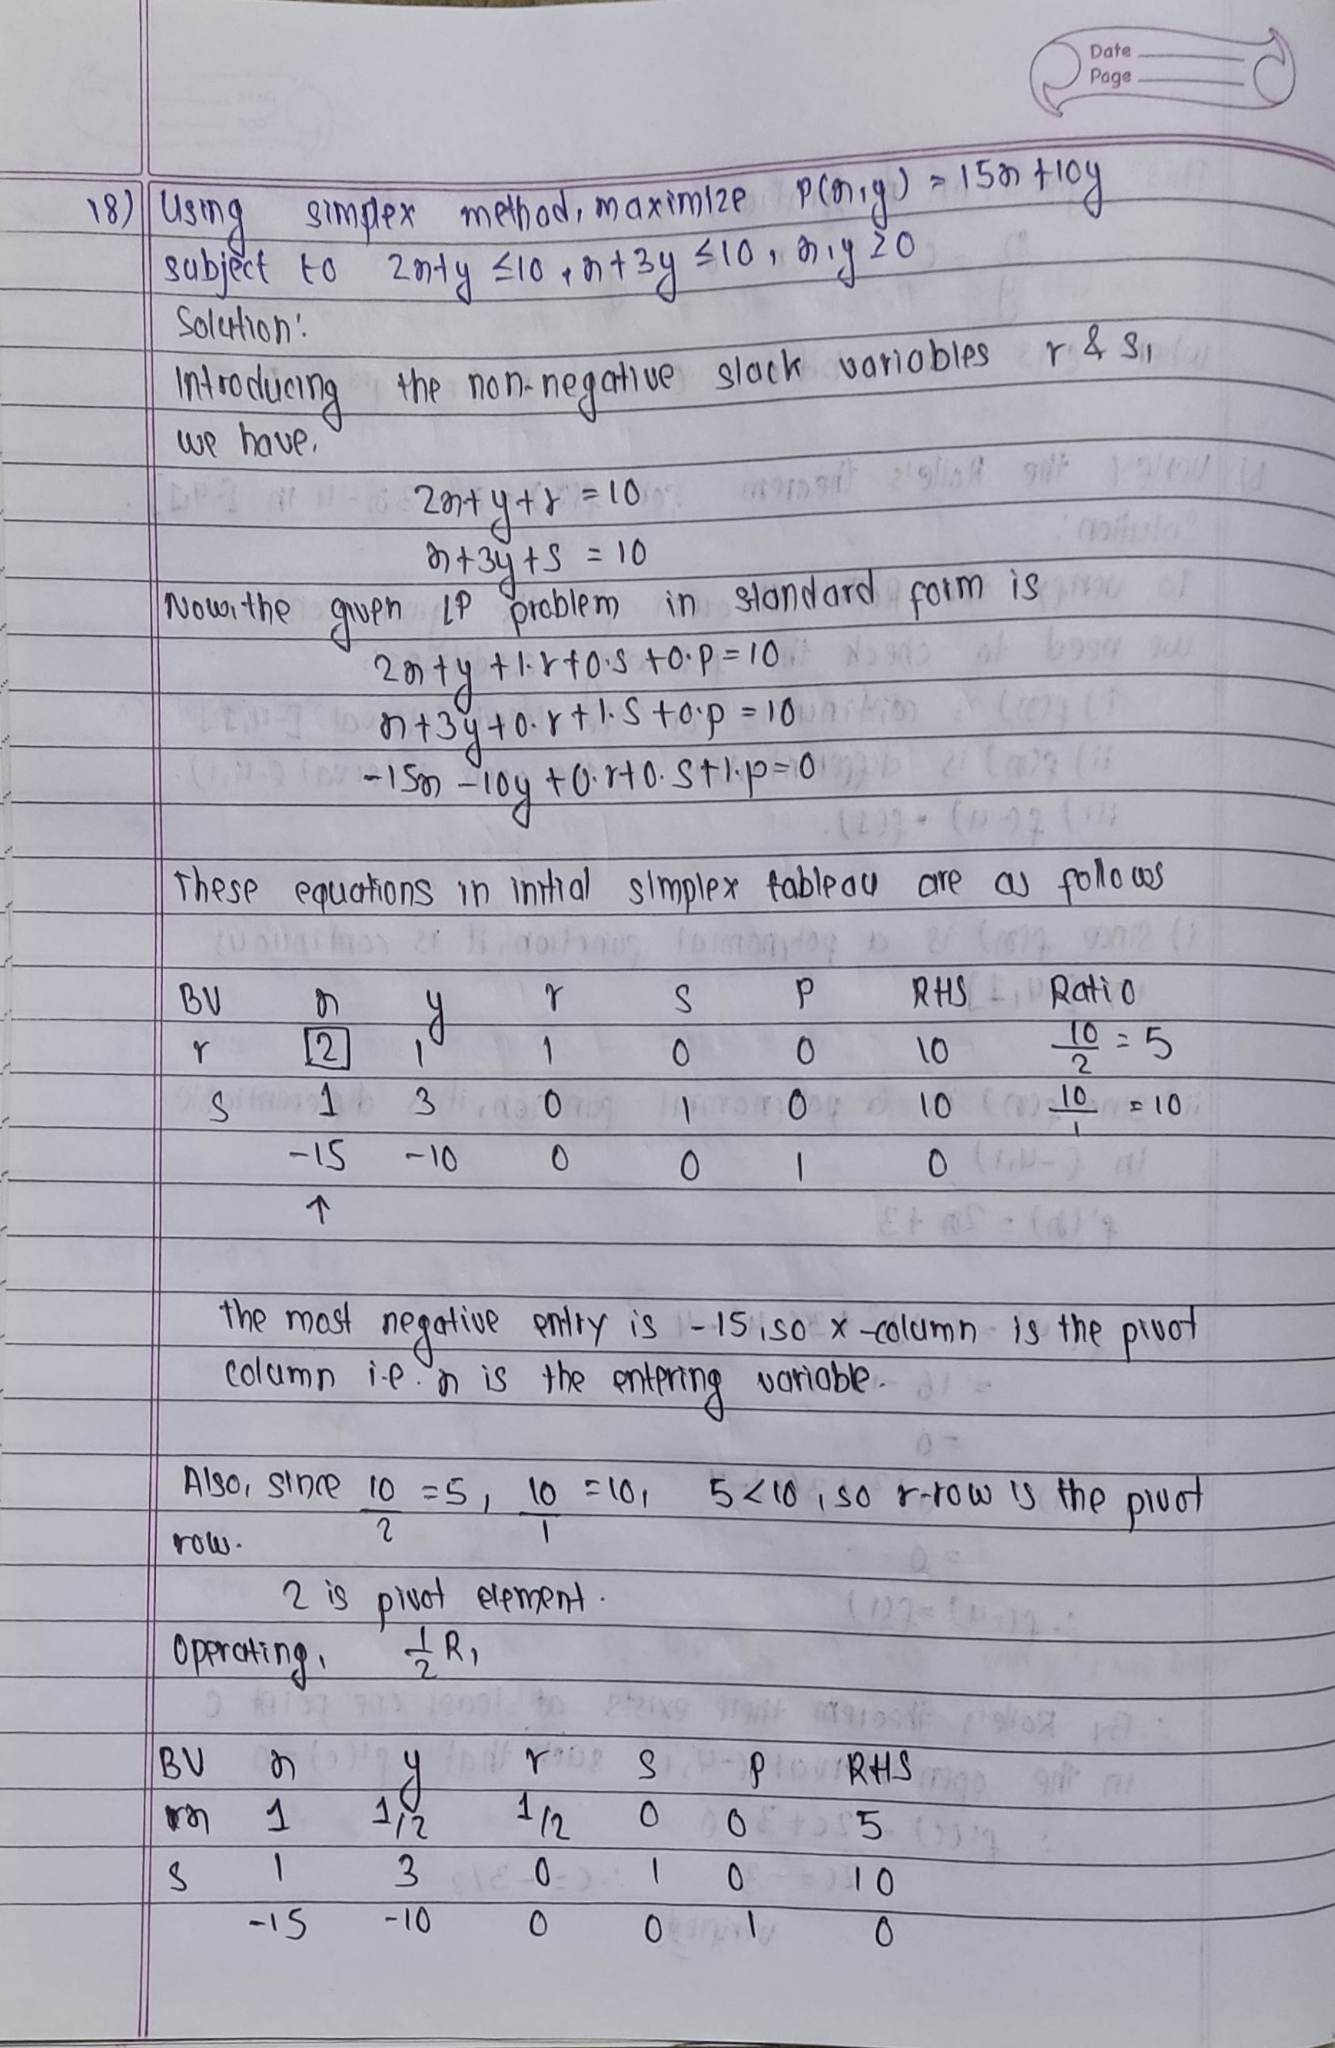 Date
Page
18) Using simplex method, maximize P(x,y) = 15x+10y
subject to 2x+y ≤10, x+3y ≤10, x,y ≥0
Solution:
Introducing the non-negative slack variables r & s,
we have,
2x+y+r = 10
x+3y+s = 10
Now, the given LP problem in standard form is
2x+y+1.r+0.s+0.p=10
x+3y+0.r+1.s+0.p=10
-15x-10y+0.r+0.s+1.p=0
These equations in initial simplex tableau are as follows
BV x y r s P RHS Ratio
r 2 1 1 0 0 10 10/2 = 5
s 1 3 0 1 0 10 10/1 = 10
-15 -10 0 0 1 0
↑
The most negative entry is -15, so x-column is the pivot
column i.e. x is the entering variable.
Also, since 10/2 = 5, 10/1 = 10, 5<10, so r-row is the pivot
row.
2 is pivot element.
Operating, 1/2 R1
BV x y r s P RHS
x 1 1/2 1/2 0 0 5
s 1 3 0 1 0 10
-15 -10 0 0 1 0